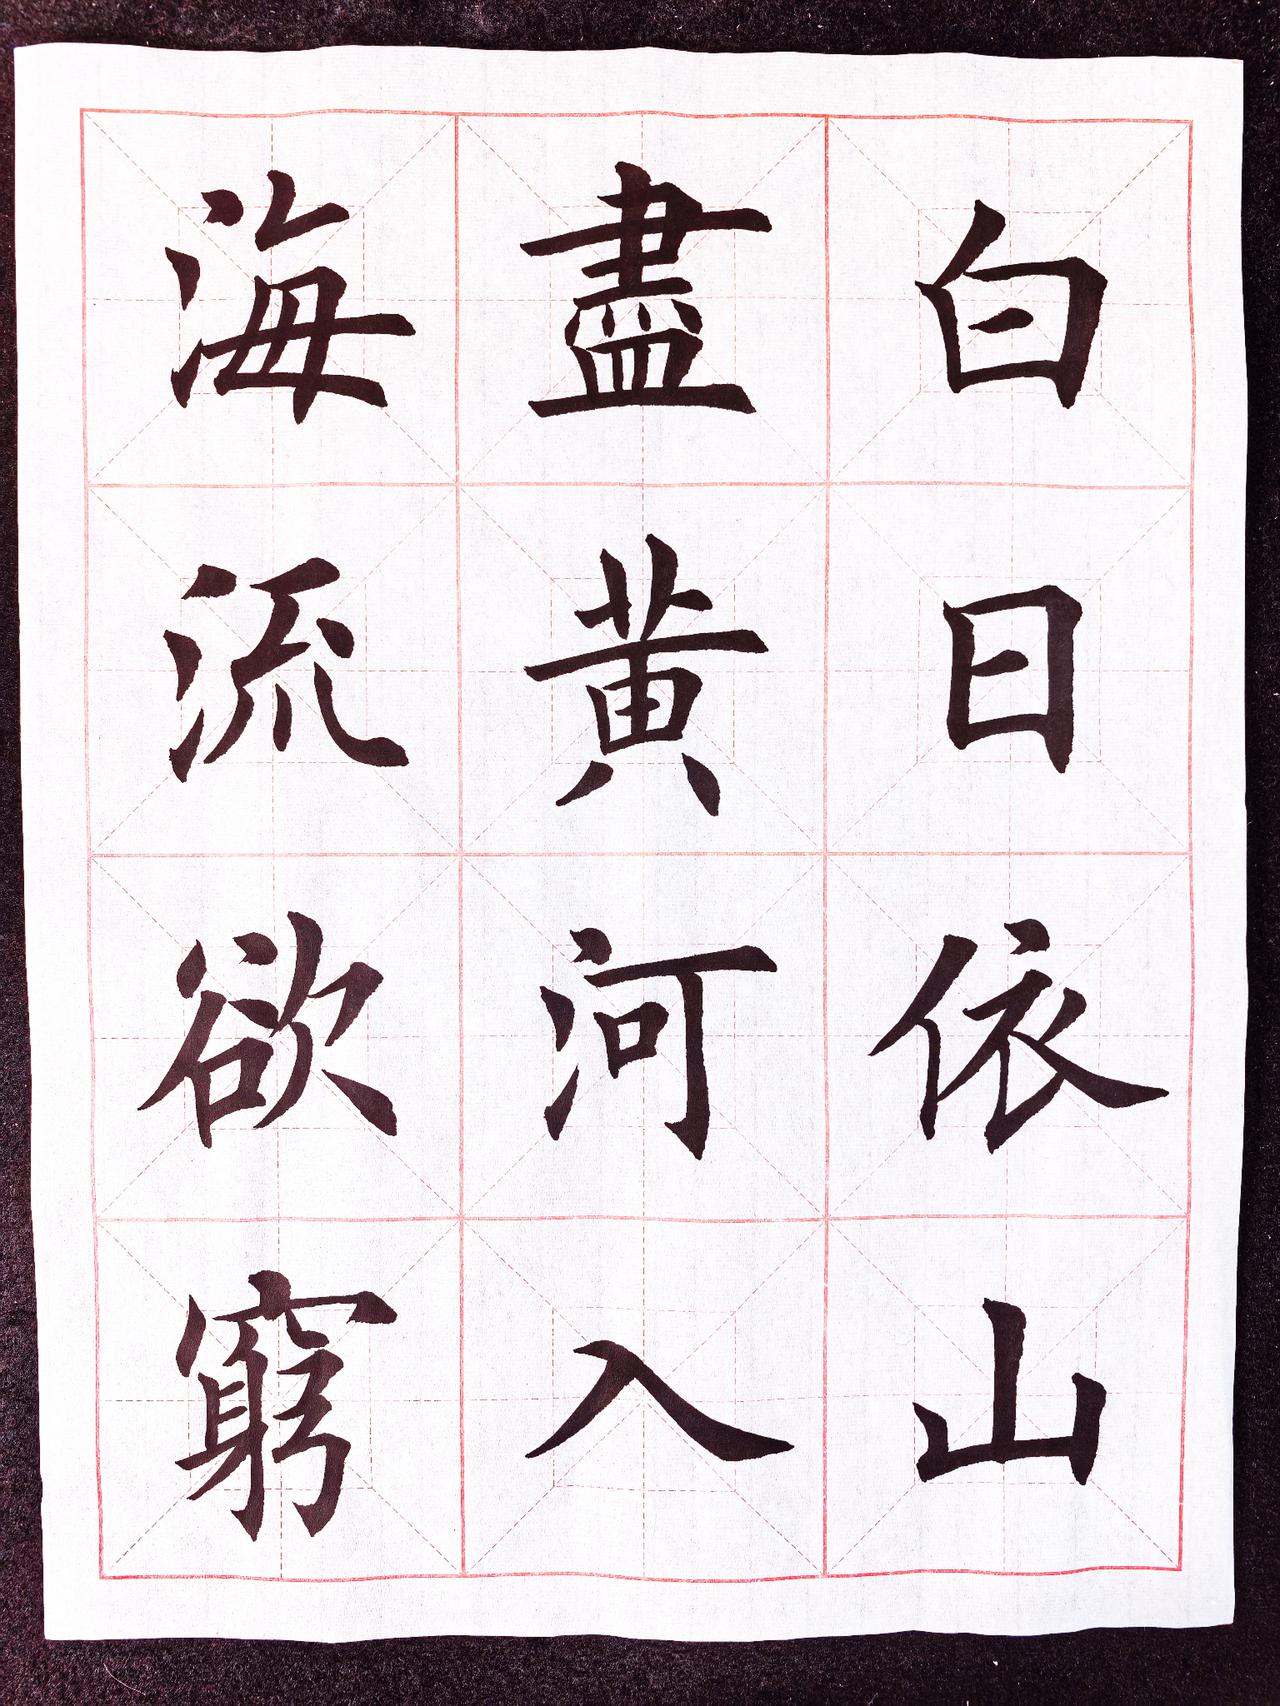 白日依山
盡黄河入
海流欲窮